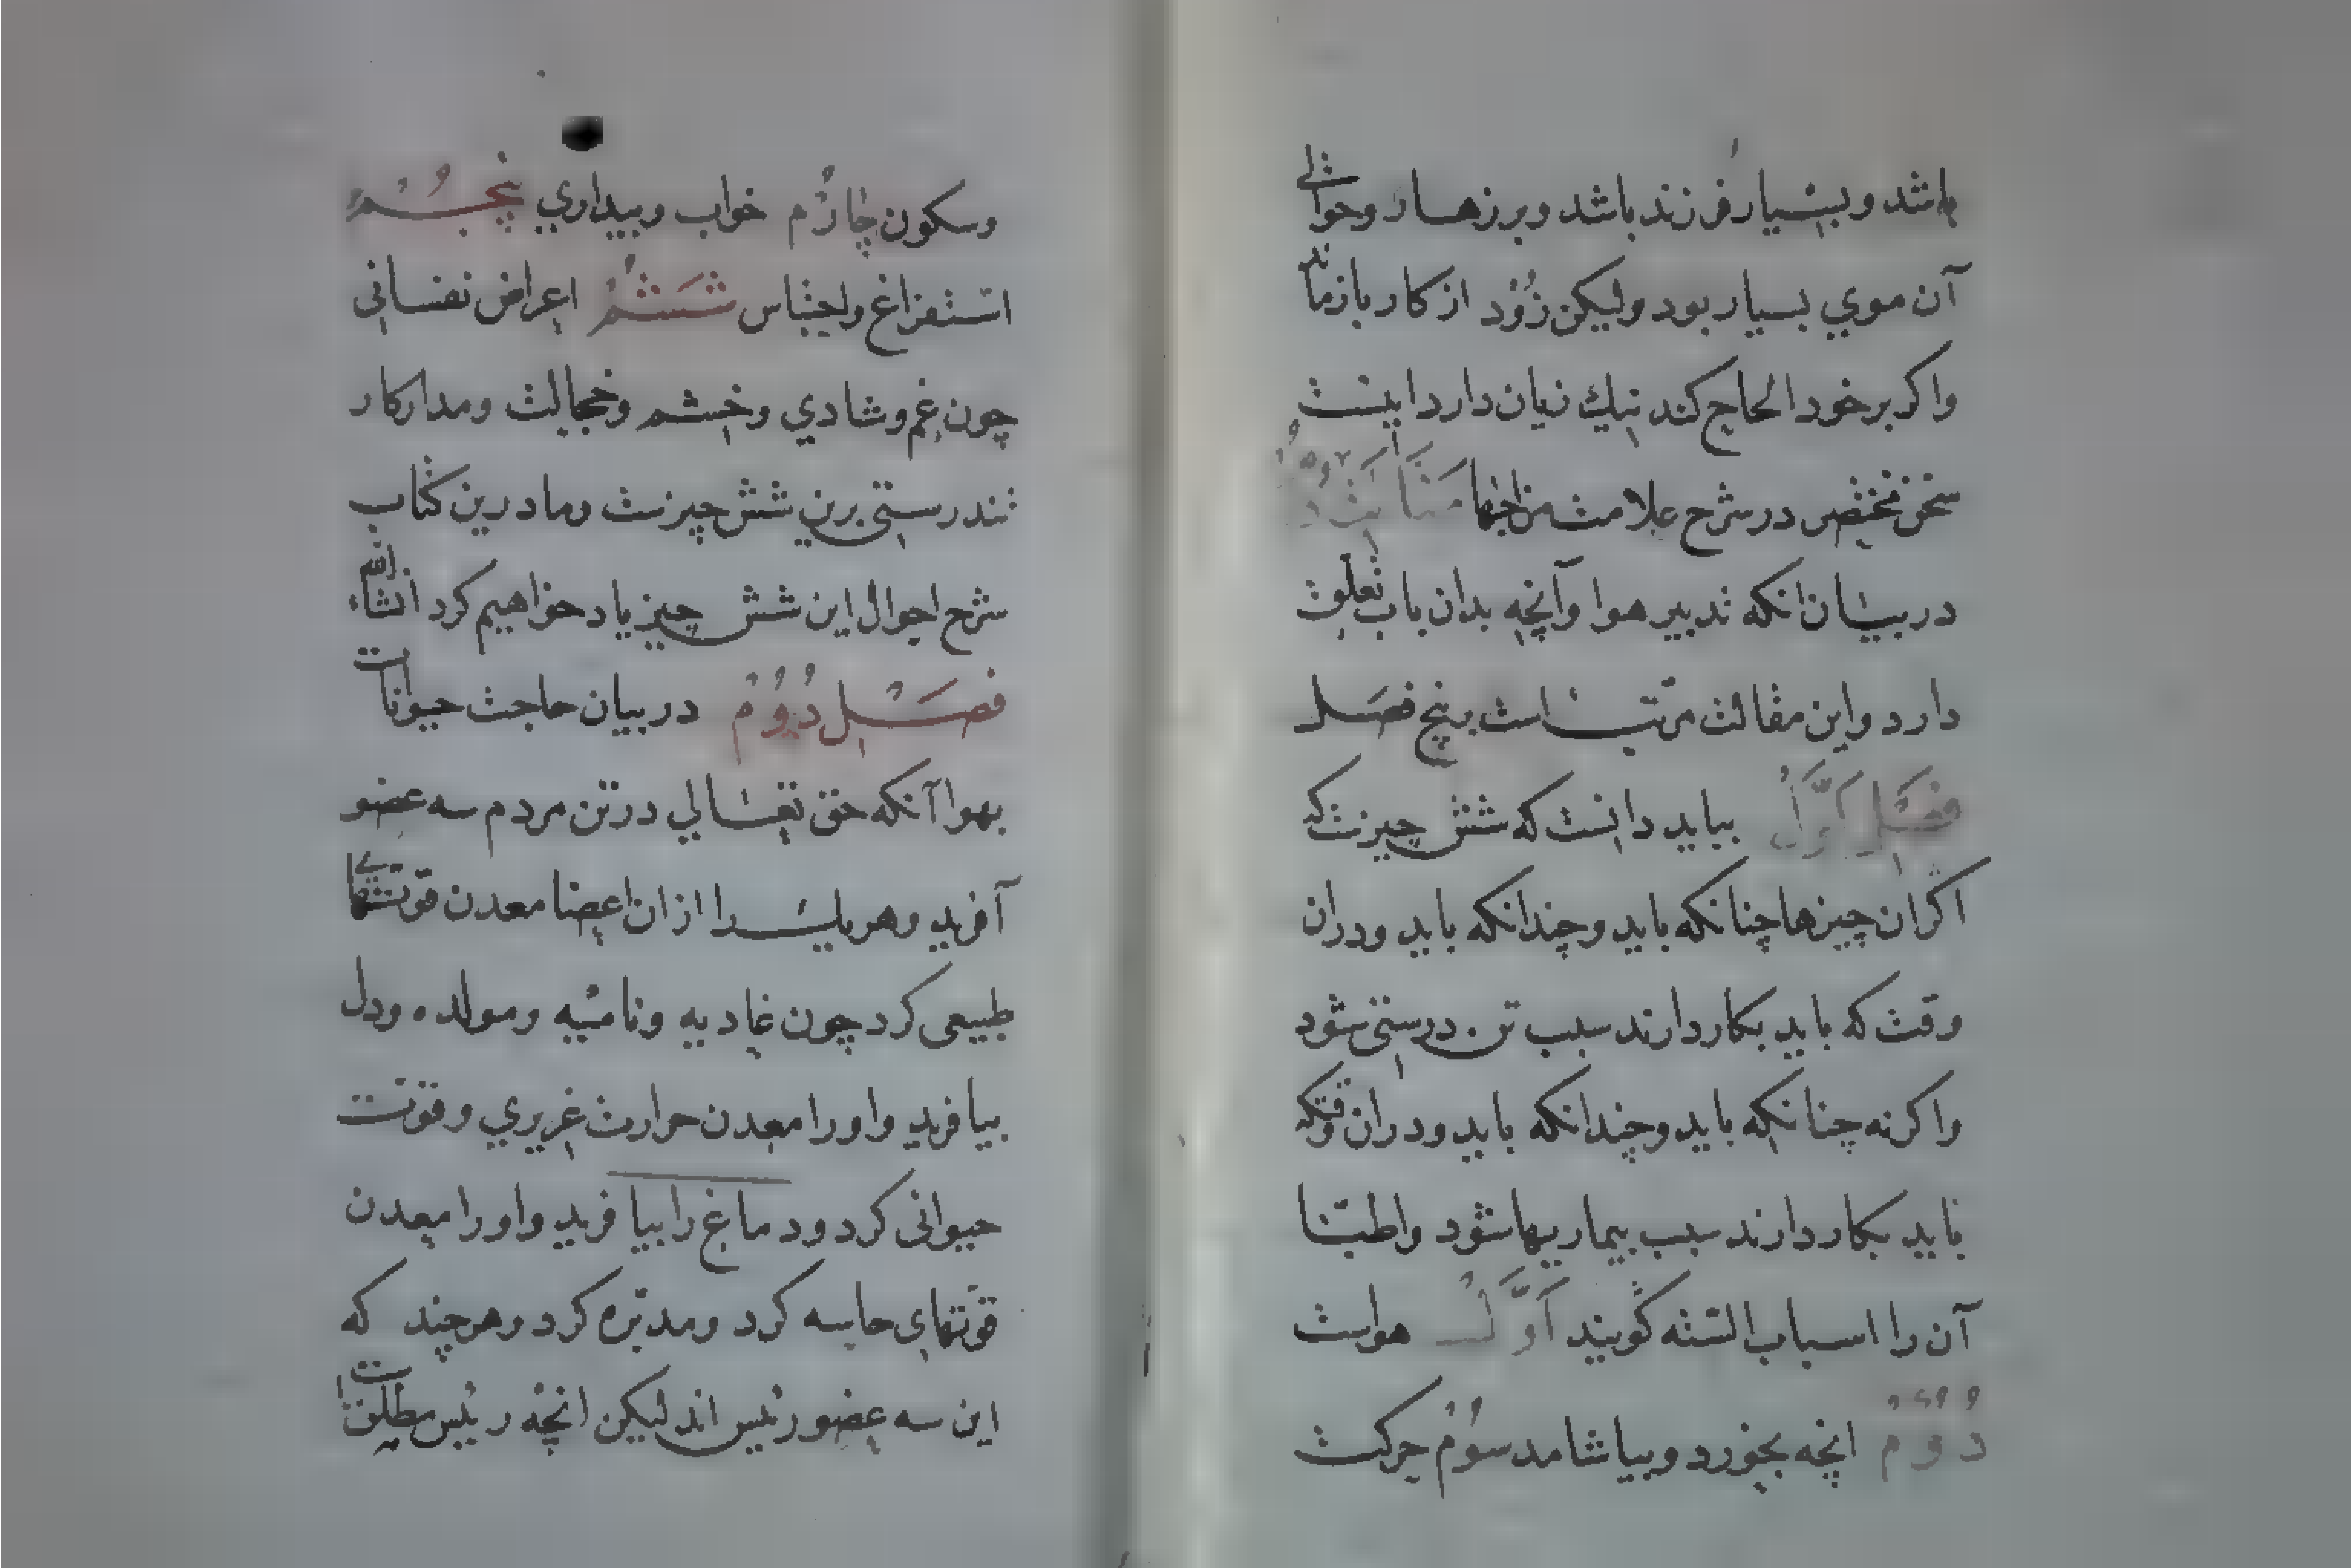 باشد و بسیار فرزند باشد و بر زهار و حوالی
آن موي بسیار بود ولیکن زُوْد از کار باز ماند
واکر بر خود الحاح کند نیك زیان دارد اینست
سخن مختصر در شرح علامت مزاجها مَقَالَتِ دُوُّمْ
در بیان انکه تدبیر هوا وآنچه بدان باب تعلق
دارد واین مقالت مرتّب است بپنج فصل
فصَلِ اَوَّلْ بباید دانست که شش چیزست که
اکر ان چیزها چنانکه باید وچندانکه باید ودران
وقت که باید بکار دارند سبب تن درستی شود
واکر نه چنانکه باید وچندانکه باید ودران وقتکه
باید بکار دارند سبب بیماریها شود واطبّا
آن را اسباب الستّه کویند اَوَّلْ هواست
دُوُمْ انچه بخورد وبیاشامد سوُمْ حرکت
وسکون چارُم خواب وبیداري پنجُمْ
استفراغ واحتباس شَشُمْ اعراض نفسانی
چون غم وشادي وخشم وخجالت ومدار کار
تندرستی برین شش چیزست وما درین کتاب
شرح احوال این شش چیز یاد خواهیم کرد انشاء الله
فصْلِ دُوُمْ در بیان حاجت حیوانات
بهوا آنکه حق تعالي در تن مردم سه عضو
آفرید وهر یك را از ان اعضا معدن قوّتهای
طبیعی کرد چون غادیه ونامیه ومولده ودل
بیافرید واورا معدن حرارت غریزي وقوّت
حیوانی کرد ودماغ را بیافرید واورا معدن
قوّتهای حاسه کرد ومدبّره کرد وهر چند که
این سه عضو رئیس اند لیکن انچه رئیس مطلق است